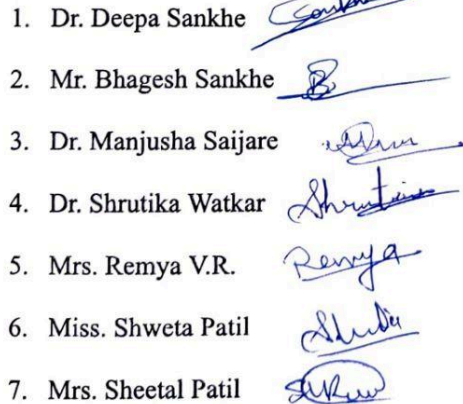 1. Dr. Deepa Sankhe
2. Mr. Bhagesh Sankhe
3. Dr. Manjusha Saijare
4. Dr. Shrutika Watkar
5. Mrs. Remya V.R. Remya
6. Miss. Shweta Patil
7. Mrs. Sheetal Patil